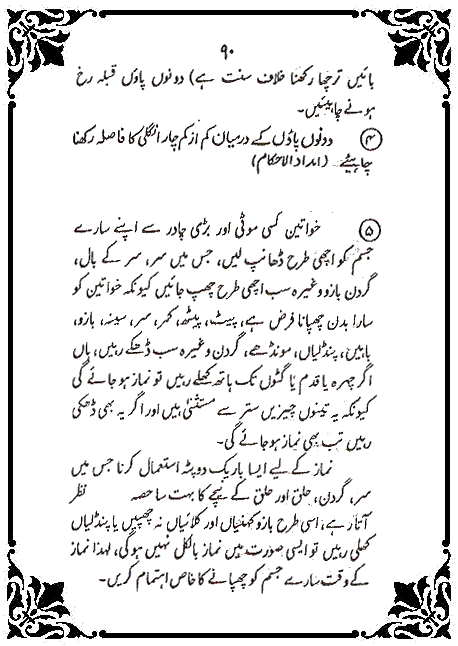 ۹۰
بائیں ترچھا رکھنا خلاف سنت ہے) دونوں پاؤں قبلہ رخ
ہونے چاہیئیں۔
۴ دونوں پاؤں کے درمیان کم از کم چار انگلی کا فاصلہ رکھنا
چاہیئے (امداد الاحکام)
۵ خواتین کسی موٹی اور بڑی چادر سے اپنے سارے
جسم کو اچھی طرح ڈھانپ لیں، جس میں سر، سر کے بال،
گردن بازو وغیرہ سب اچھی طرح چھپ جائیں کیونکہ خواتین کو
سارا بدن چھپانا فرض ہے، پیٹ، پیٹھ، کمر، سر، سینہ، بازو،
باہیں، پنڈلیاں، مونڈھے، گردن وغیرہ سب ڈھکے رہیں، ہاں
اگر چہرہ یا قدم یا گٹوں تک ہاتھ کھلے رہیں تو نماز ہو جائے گی
کیونکہ یہ تینوں چیزیں ستر سے مستثنیٰ ہیں اور اگر یہ بھی ڈھکی
رہیں تب بھی نماز ہو جائے گی۔
نماز کے لیے ایسا باریک دوپٹہ استعمال کرنا جس میں
سر، گردن، حلق اور حلق کے نیچے کا بہت سا حصہ نظر
آتا رہے، اسی طرح بازو کہنیاں اور کلائیاں نہ چھپیں یا پنڈلیاں
کھلی رہیں تو ایسی صورت میں نماز بالکل نہیں ہوگی، لہٰذا نماز
کے وقت سارے جسم کو چھپانے کا خاص اہتمام کریں۔